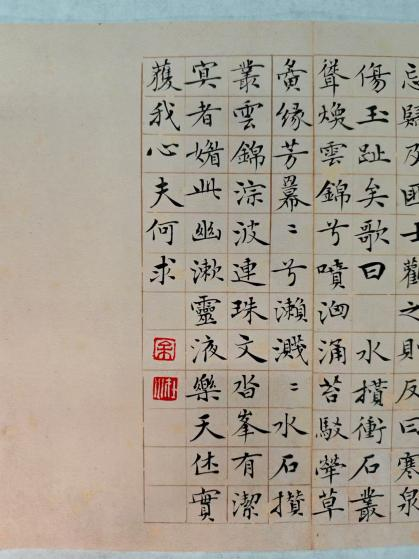 忘歸及匪士觀之則反曰寒泉
傷玉趾矣歌曰 水攢衝石叢
聳煥雲錦兮噴洶涌苔駁犖草
夤緣芳冪〻兮瀨濺〻水石攢
叢雲錦淙波連珠文沓峯有潔
冥者媚此幽漱靈液樂天休實
獲我心夫何求